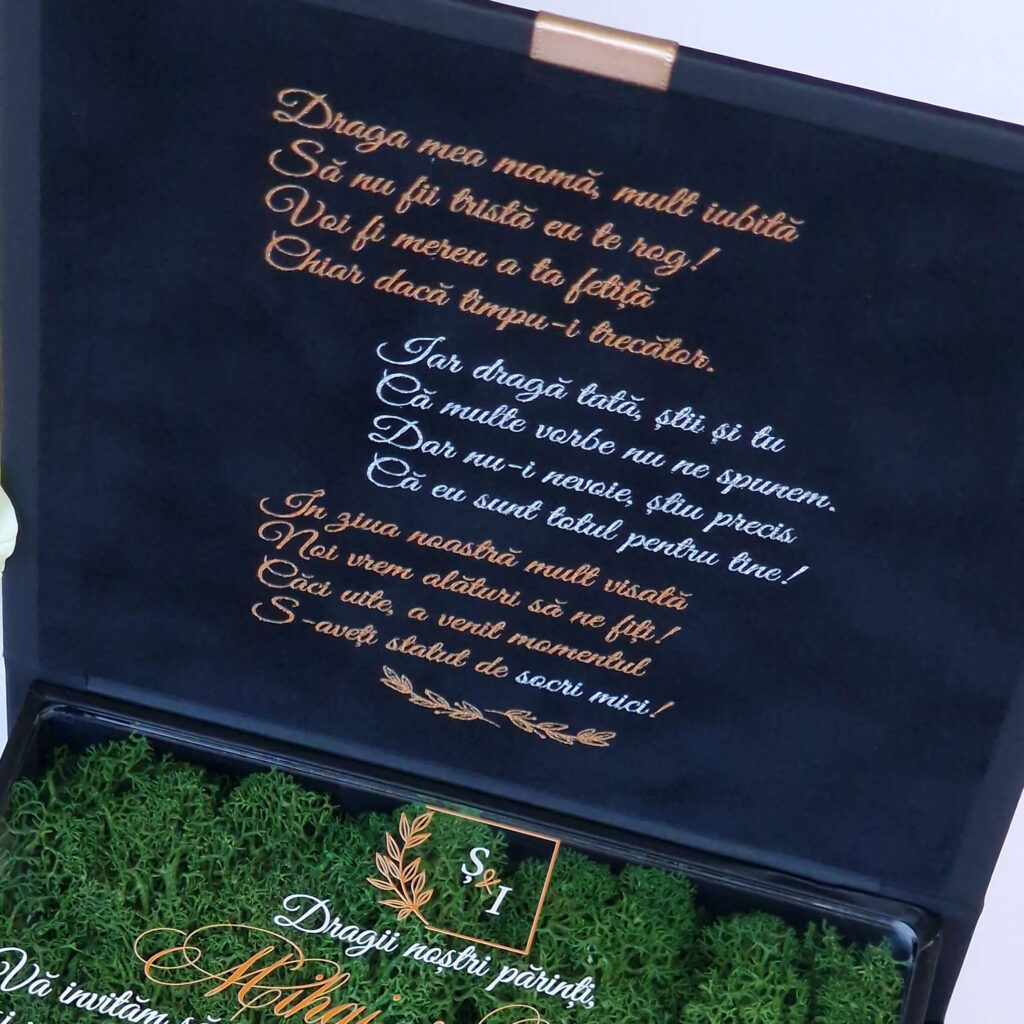 Draga mea mamă, mult iubită
Să nu fii tristă eu te rog!
Voi fi mereu a ta fetiță
Chiar dacă timpu-i trecător.
Iar dragă tată, știi și tu
Că multe vorbe nu ne spunem.
Dar nu-i nevoie, știu precis
Că eu sunt totul pentru tine!
În ziua noastră mult visată
Noi vrem alături să ne fiți!
Căci uite, a venit momentul
S-aveți statut de socri mici!
Ș&I
Dragii noștri părinți,
Mihai
Vă invităm să